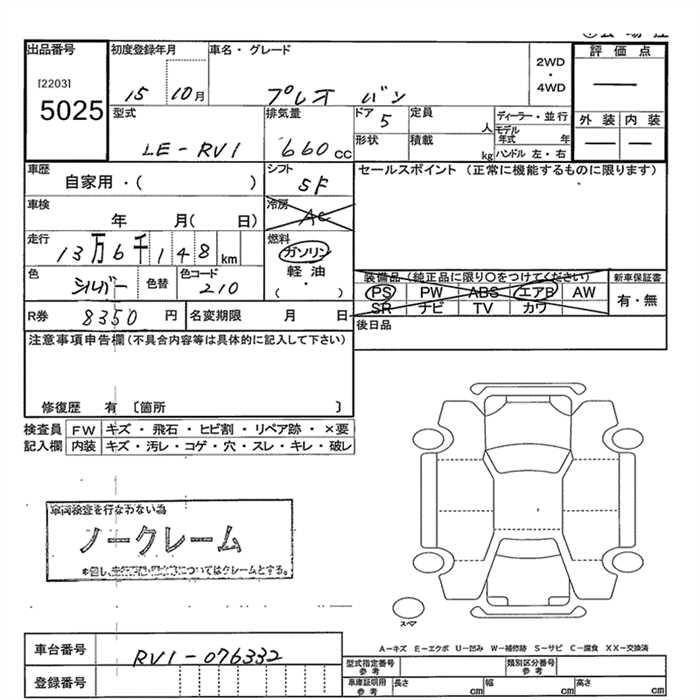 出品番号 初度登録年月 車名・グレード 評価点
[2203] 2WD
・
4WD
5025 15 10月 プレオ バン
型式 排気量 ドア 定員 ディーラー・並行 外装 内装
5 人 モデル年式 年
LE-RV1 660cc 形状 積載 kg ハンドル 左・右
車歴 シフト セールスポイント (正常に機能するものに限ります)
自家用・( ) 5F
車検 冷房
年 月( 日) AC
走行 燃料
13万6千148km ガソリン
色 シルバー 色替 色コード 210 軽油
・
( )
装備品(純正品に限り○をつけてください) 新車保証書
PS PW ABS エアB AW 有・無
SR ナビ TV カワ
R券 8350円 名変期限 月 日 後日品
注意事項申告欄(不具合内容等は具体的に記入して下さい)
修復歴 有 〔箇所 〕
検査員 FW キズ・飛石・ヒビ割・リペア跡・×要
記入欄 内装 キズ・汚レ・コゲ・穴・スレ・キレ・破レ
車両検査を行なわない為
ノークレーム
についてはクレームとする。
スペア
車台番号 RV1-076332 A-キズ E-エクボ U-凹み W-補修跡 S-サビ C-腐食 XX-交換済
型式指定番号 参考 類別区分番号 参考
登録番号 車庫証明用 参考 長さ cm 幅 cm 高さ cm